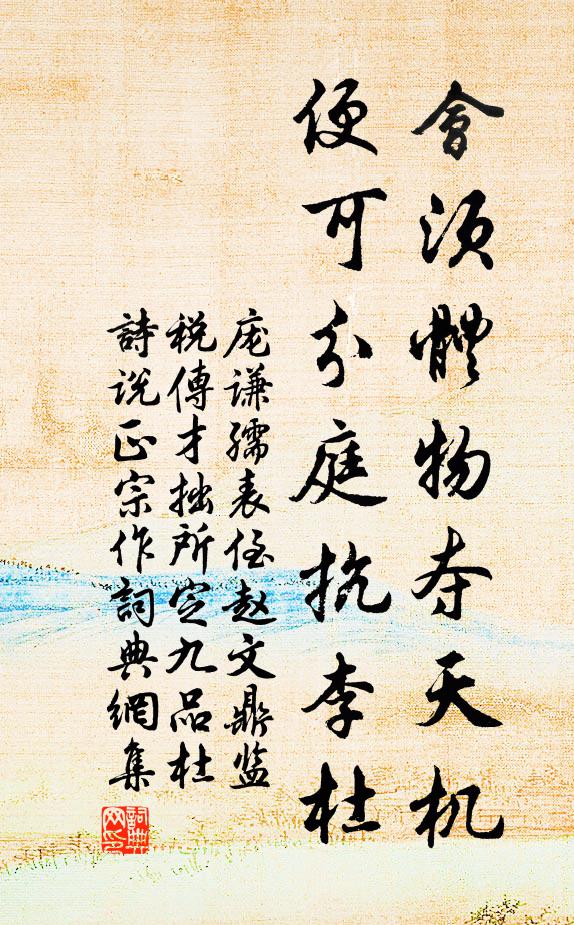 會須體物夺天机
便可分庭抗李杜
庞谦孺表侄赵文鼎监
税傳才拙所定九品杜
詩说正宗作詞典網集
詞典網印